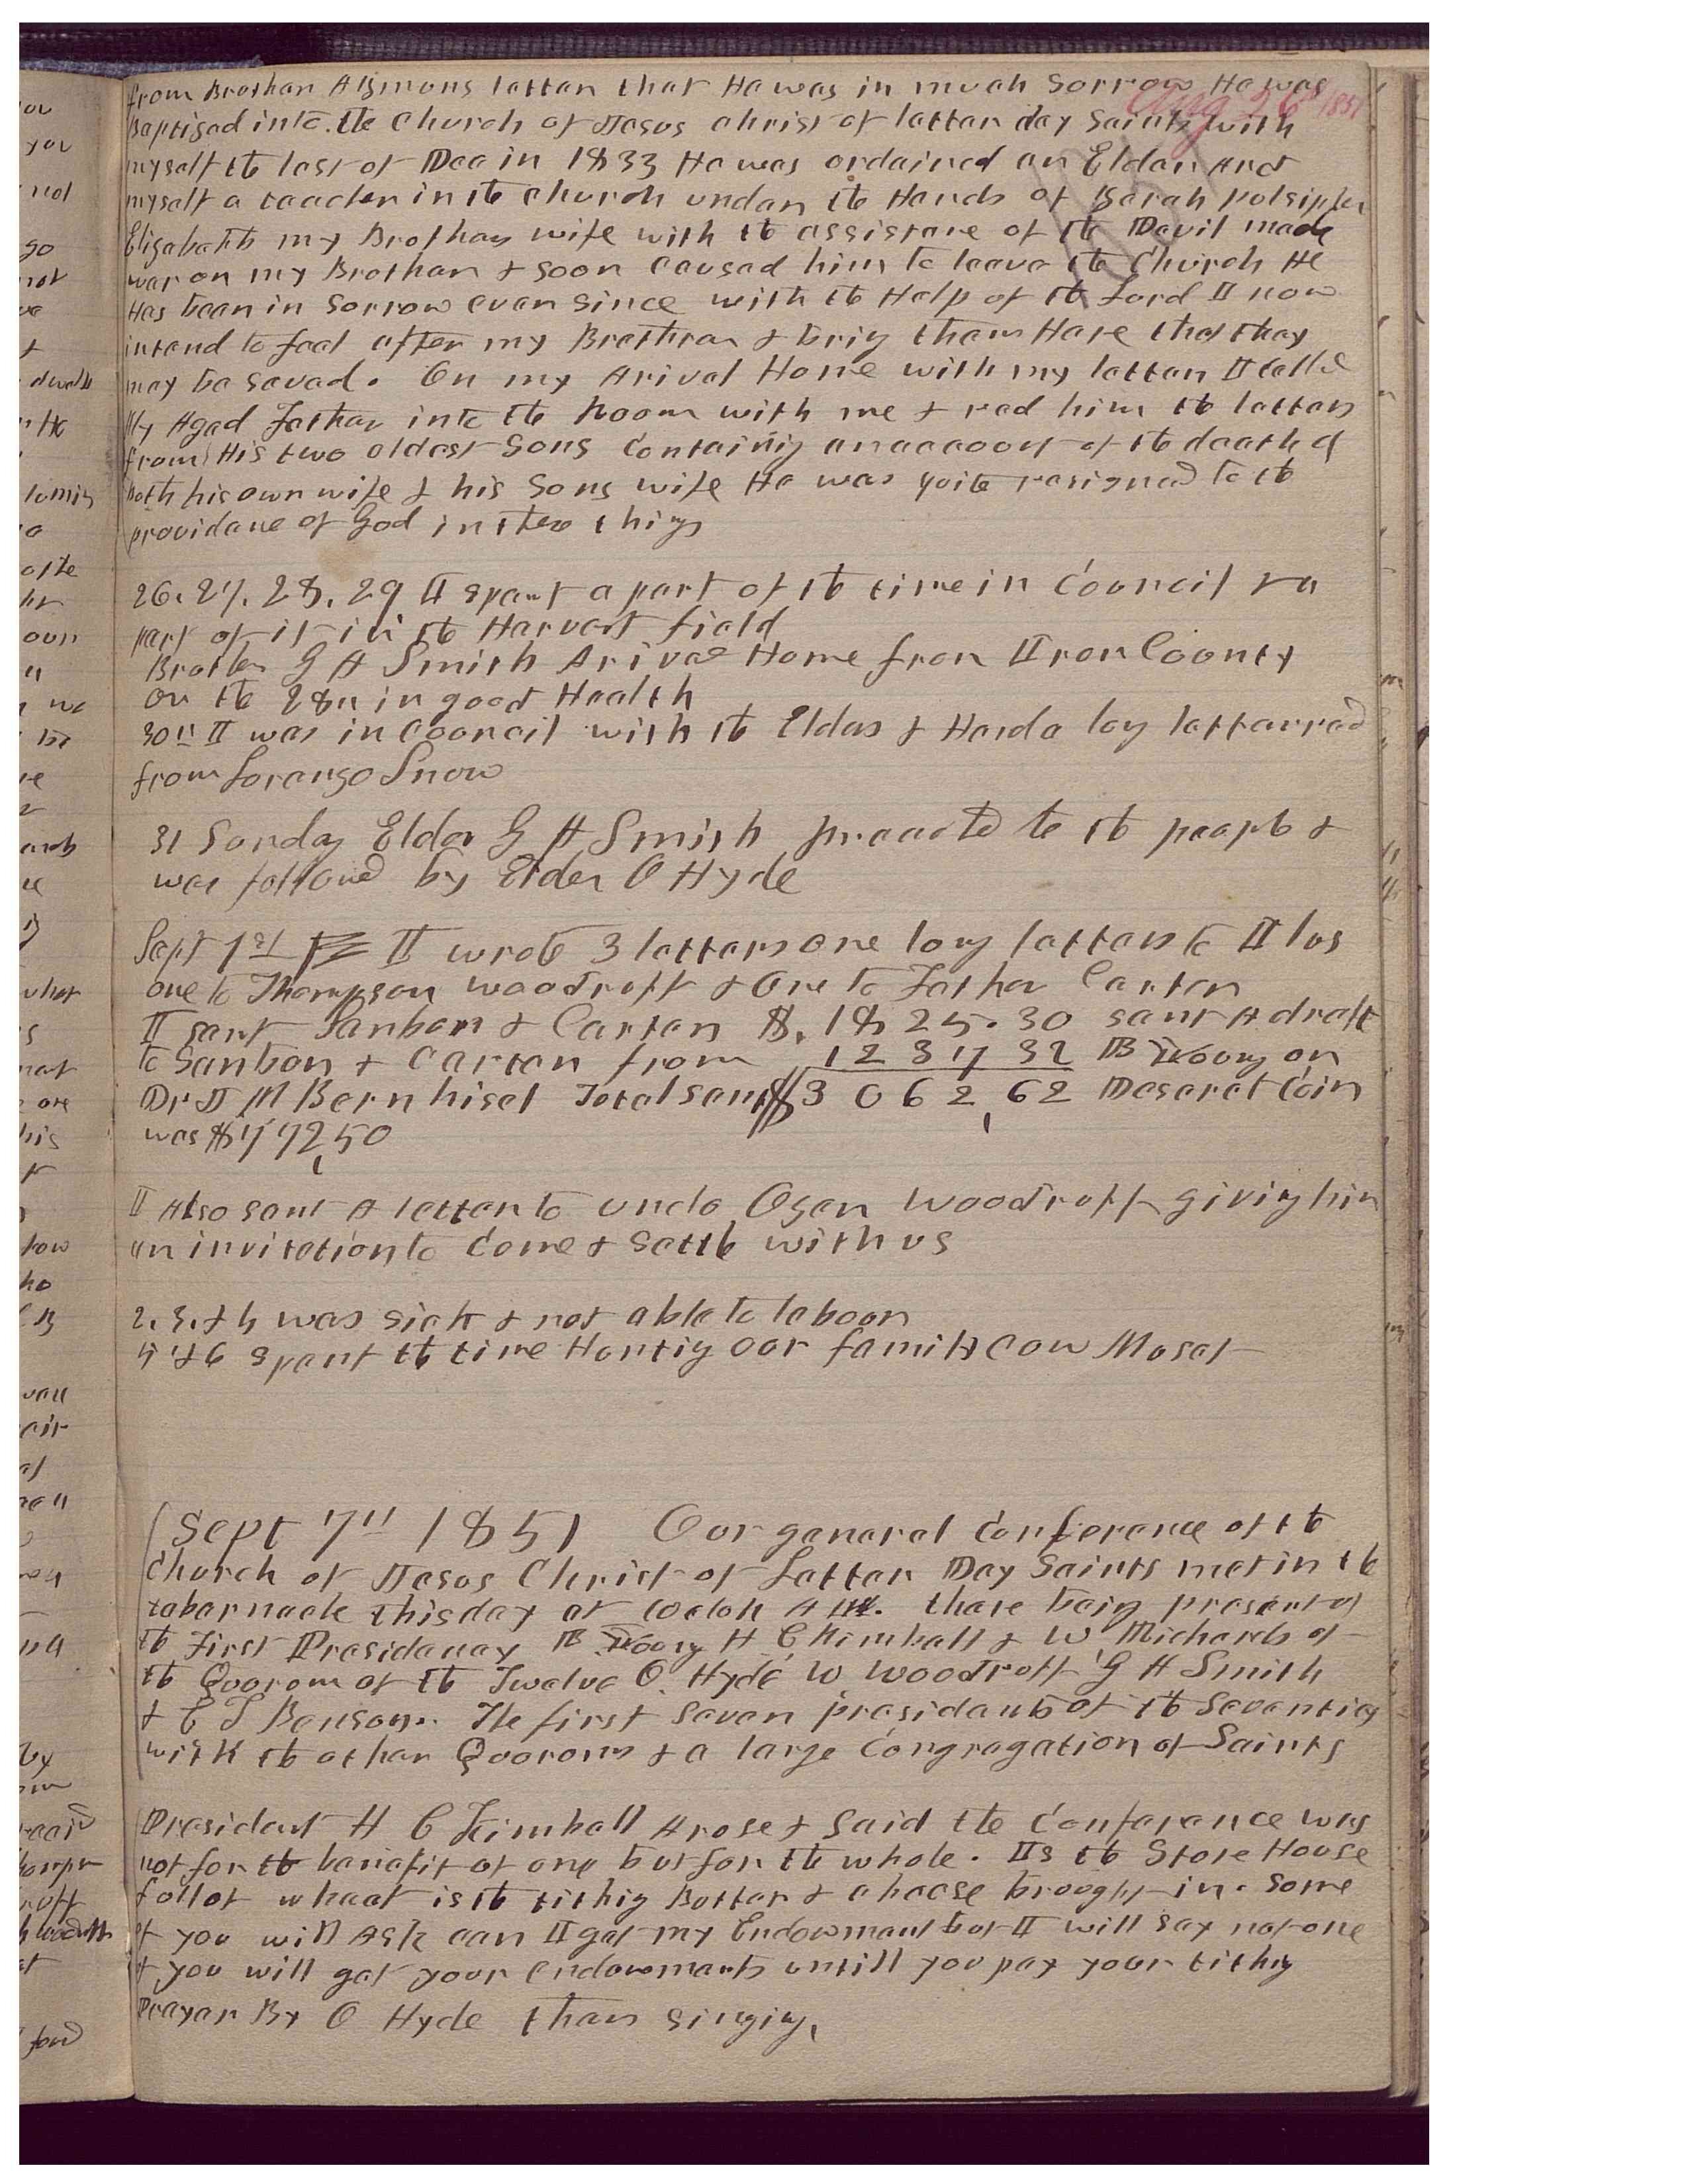 Aug 26th 1851
from Brother Azmons letter that He was in much sorrow He was
Baptized into the Church of Jesus Christ of latter day Saints with
myself the last of Dec in 1833 He was ordained an Elder And
myself a teacher in the Church under the Hands of Zerah pulsipher
Elizabeth my Brothers wife with the assistane of the Devil made
war on my Brother & soon caused him to leave the Church He
Has been in sorrow ever since with the Help of the Lord I now
intend to feel after my Brethren & bring them Here that they
may be saved. On my Arival Home with my letter I called
My Aged Father into the Room with me & red him the letters
from His two oldest Sons Containing an account of the death of
both his own wife & his Sons wife He was quite resigned to the
providane of God in these things
26. 27. 28. 29 I spent a part of the time in Council & a
part of it in the Harvest field
Brother G A Smith Arived Home from Iron County
on the 28th in good Health
30th I was in Council with the Elders & Herd a long letter red
from Lorenzo Snow
31 Sunday Elder G A Smith preached to the people &
was followed by Elder O Hyde
Sept 1st I wrote 3 letters one long letter to Ilus
one to Thompson Woodruff & one to Father Carter
I sent Sanborn & Carter $.1825.30 sent A draft
to Sanborn & Carter from 1237 32 B Young on
Dr J M Bernhisel Total sent $3062,62 Deseret Coin
was $772,50
I Also sent A letter to uncle Ozem Woodruff giving him
an invitation to Come & settle with us
2. 3. & 4 was sick & not able to labour
5 & 6 spent the time Hunting our family cow Mosat
Sept 7th 1851 Our general Conference of the
Church of Jesus Christ of Latter Day Saints met in the
tabernacle this day at 10 oclok A M. there being present of
the First Presidency B Young H C Kimball & W Richards of
the Quorum of the Twelve O. Hyde W Woodruff G A Smith
& E T Benson. The first Seven presidents of the Seventies
with the other Quorums & a large Congregation of Saints
President H C Kimball Arose & Said the Conferance was
not for the benefit of one but for the whole. Is the Store House
full of wheat is the tithing Butter & cheese brought in. Some
of you will Ask can I get my Endowment but I will say not one
of you will get your endowments untill you pay your tithing
Prayer By O Hyde then singing,